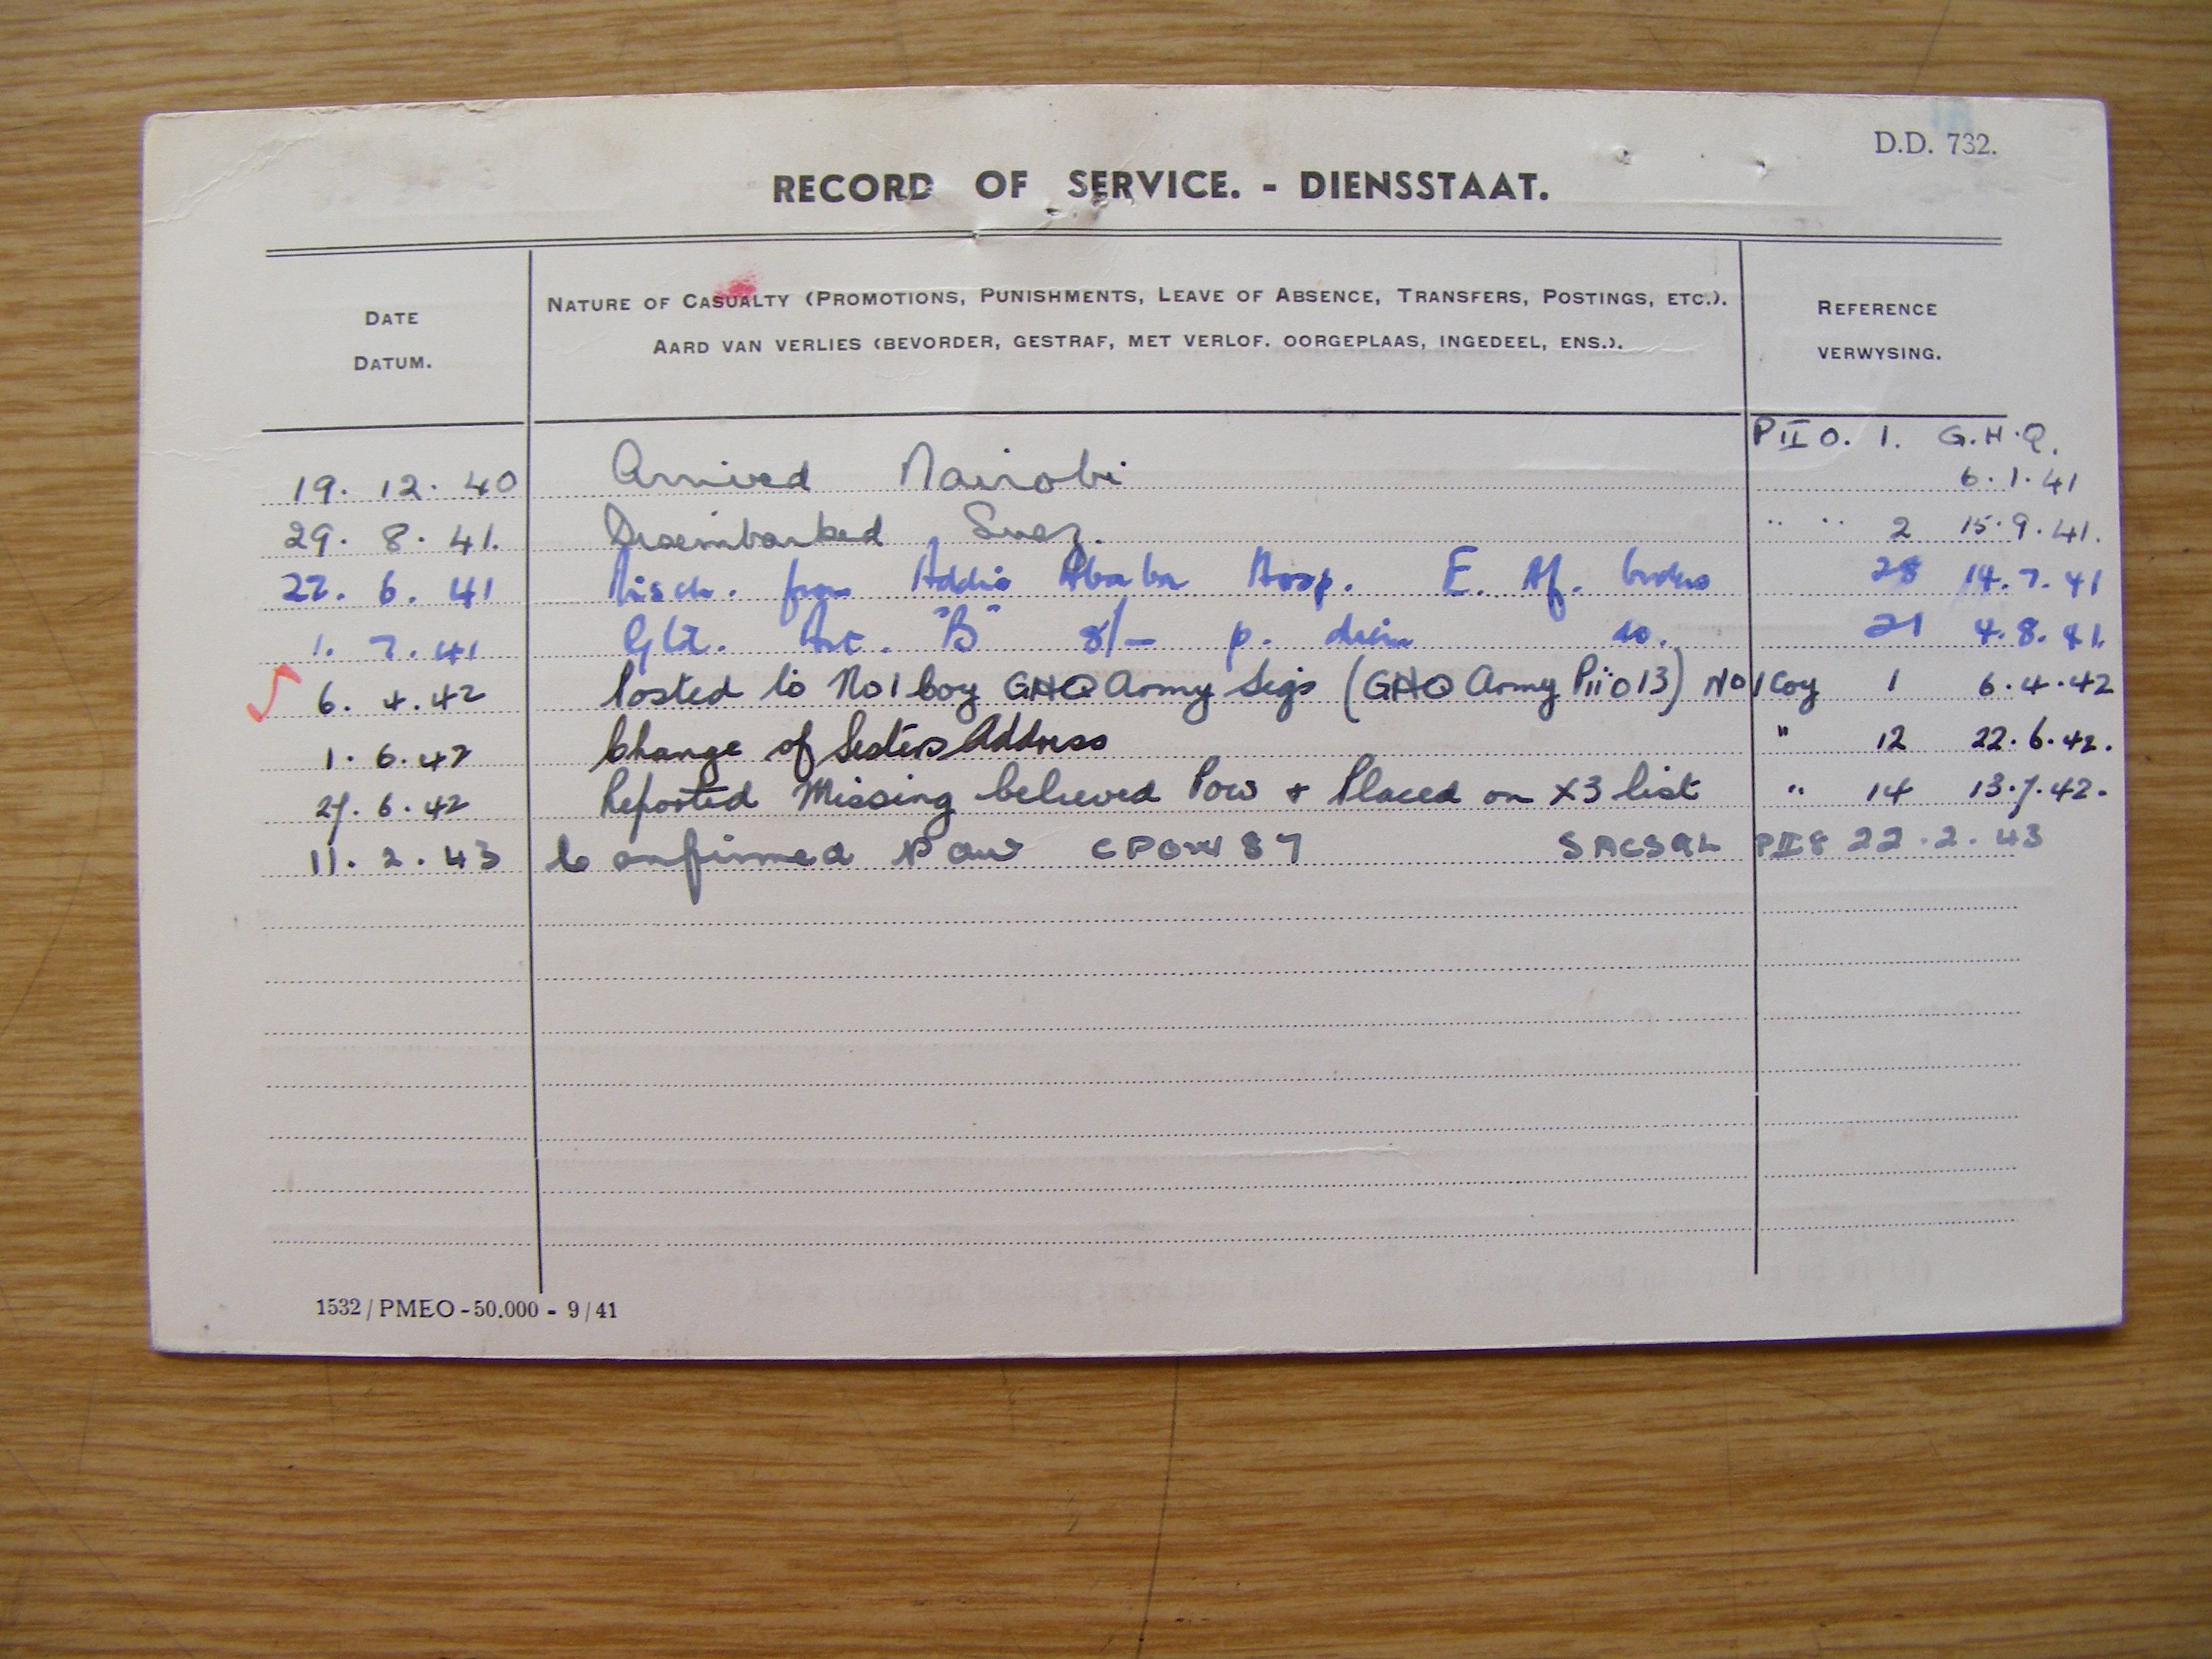 D.D. 732.
RECORD OF SERVICE. - DIENSSTAAT.
DATE
DATUM.
NATURE OF CASUALTY (PROMOTIONS, PUNISHMENTS, LEAVE OF ABSENCE, TRANSFERS, POSTINGS, ETC.).
AARD VAN VERLIES (BEVORDER, GESTRAF, MET VERLOF. OORGEPLAAS, INGEDEEL, ENS.).
REFERENCE
VERWYSING.
PII O. 1. G.H.Q.
19. 12. 40 Arrived Nairobi 6.1.41
29. 8. 41. Disembarked Suez. " " 2 15.9.41.
22. 6. 41 Disch. from Addis Ababa Hosp. E. Af. 28 14.7.41
1. 7. 41 "B" p. diem do. 21 4.8.41.
6. 4. 42 Posted to No1 Coy GHQ Army Sigs (GHQ Army Pii O 13) No 1 Coy 1 6.4.42
1. 6. 42 Change of Sisters Address " 12 22.6.42.
27. 6. 42 Reported Missing believed Pow + Placed on X3 list " 14 13.7.42.
11. 2. 43 Confirmed POW CPOW 87 PII 8 22.2.43
1532/PMEO-50.000 - 9/41